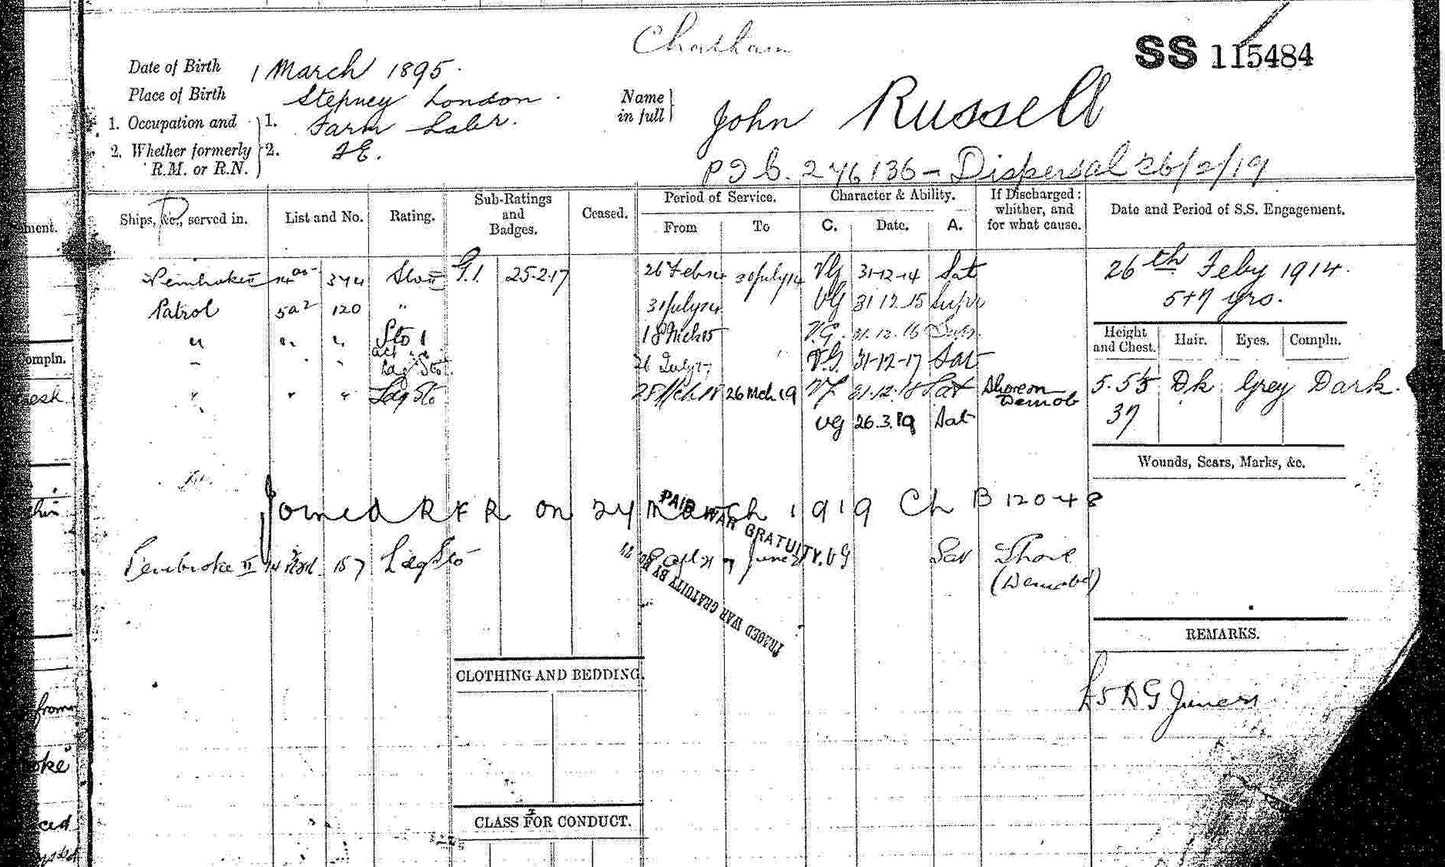 Chatham
SS 115484
Date of Birth 1 March 1895.
Place of Birth Stepney London.
1. Occupation and 1. Farm Labr.
2. Whether formerly R.M. or R.N. 2.
Name in full John Russell
276136 - Dispersal 26/2/19
Ships, &c., served in. List and No. Rating. Sub-Ratings and Badges. Ceased. Period of Service. From To Character & Ability. C. Date. A. If Discharged: whither, and for what cause. Date and Period of S.S. Engagement.
Pembroke II 374 Sto II G.1 25·2·17 30 July 14 VG 31·12·14 Sat 26th Feby 1914.
Patrol 5a2 120 " 31 July 14 VG 31 12 15 Supr 5+7 yrs.
" " " Sto 1 18 Mch 15 V.G. 31·12·16 Supr.
" " Act Ldg Sto 26 July 17 V.G. 31-12-17 Sat
" " " Ldg Sto 28 Mch 18 26 Mch 19 VG 31·12·18 Sat Shore on Demob
VG 26.3.19 Sat
Height and Chest. Hair. Eyes. Compln.
5.5½ Dk Grey Dark
37
Wounds, Scars, Marks, &c.
Joined RFR on 27 March 1919 Ch B 12048
PAID WAR GRATUITY.
Pembroke II 157 Ldg Sto June VG Sat Shore
(Demobd)
TRACED WAR GRATUITY
REMARKS.
CLOTHING AND BEDDING.
CLASS FOR CONDUCT.
ment.
Compln.